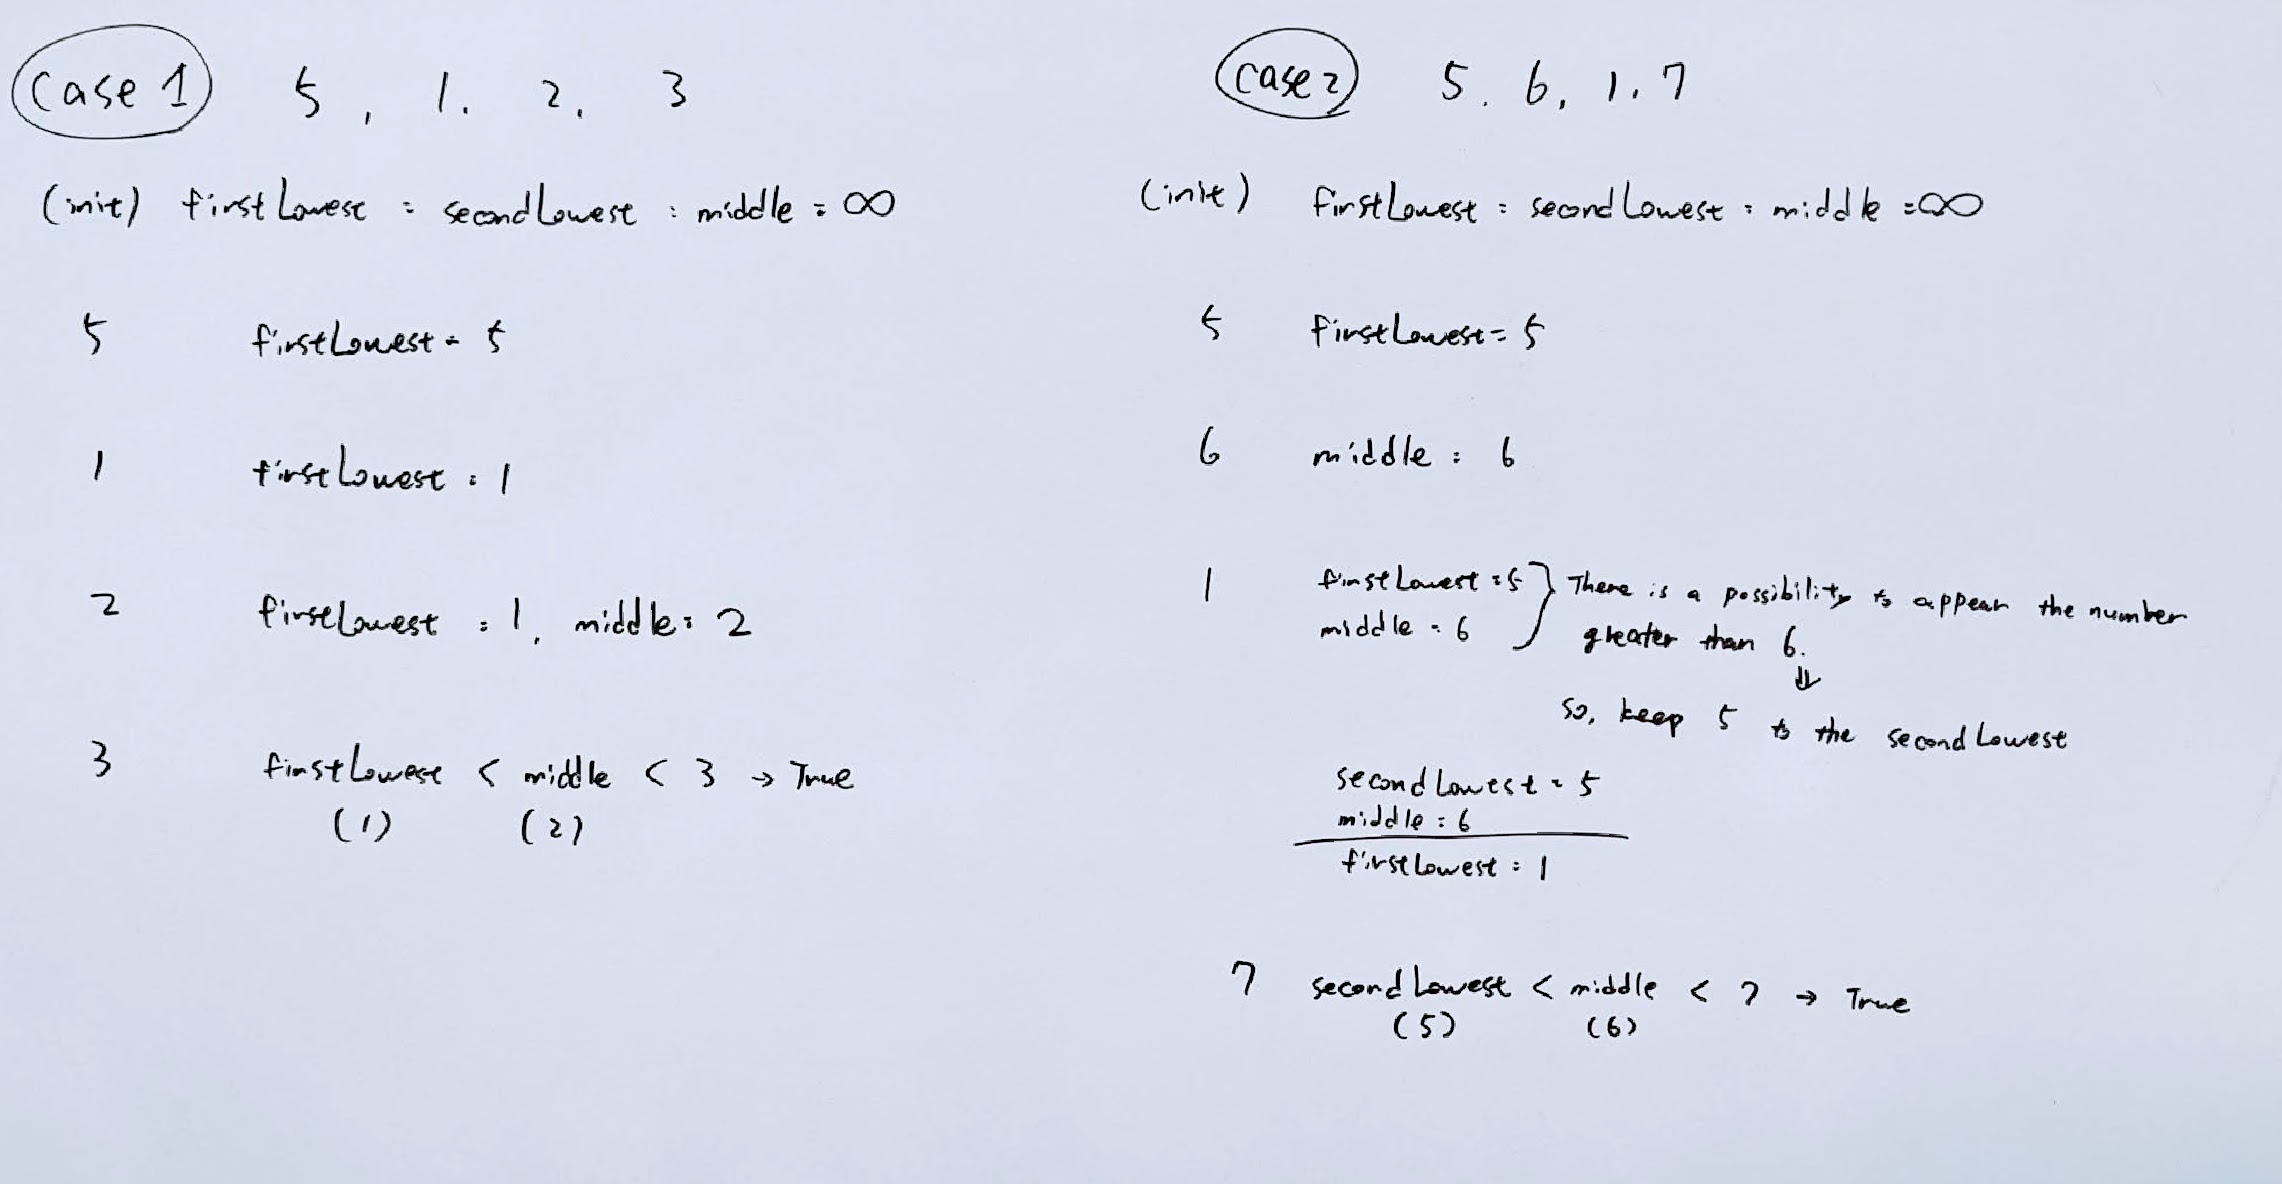 Case 1 5, 1, 2, 3
(init) firstLowest = secondLowest = middle = ∞
5 firstLowest = 5
1 firstLowest = 1
2 firstLowest = 1, middle = 2
3 firstLowest < middle < 3 → True
(1) (2)
Case 2 5, 6, 1, 7
(init) firstLowest = secondLowest = middle = ∞
5 firstLowest = 5
6 middle = 6
1 firstLowest = 5 } There is a possibility to appear the number
middle = 6 greater than 6.
⇓
So, keep 5 to the secondLowest
secondLowest = 5
middle = 6
firstLowest = 1
7 secondLowest < middle < 7 → True
(5) (6)